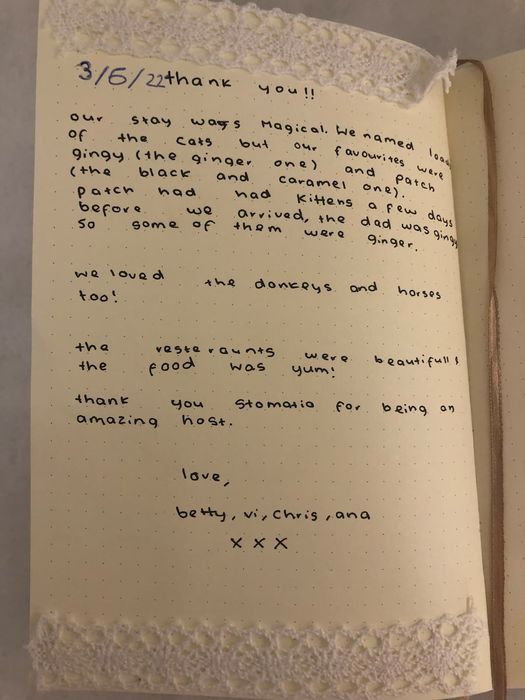 3/6/22 thank you!!
our stay was magical. We named loads
of the cats but our favourites were
gingy (the ginger one) and patch
(the black and caramel one).
patch had had kittens a few days
before we arrived, the dad was gingy
so some of them were ginger.
we loved the donkeys and horses
too!
the resteraunts were beautifull &
the food was yum!
thank you Stomatia for being an
amazing host.
love,
betty, vi, Chris, ana
x x x